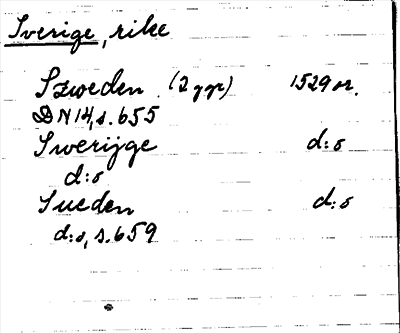 Sverige, rike
Szweden (2 ggr) 1529 or.
DN 14, s. 655
Swerijge d:o
d:o
Sueden d:o
d:o, s. 659